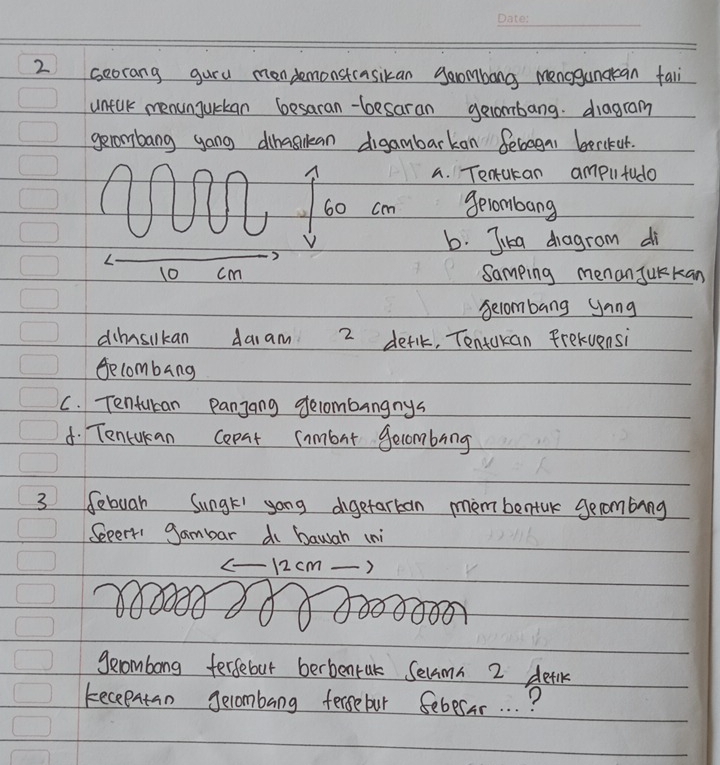 Date:
2 Seorang guru mendemonstrasikan gelombang menggunakan tali
untuk menunjukkan besaran-besaran gelombang. diagram
gelombang yang dihasilkan digambarkan sebagai berikut.
a. Tentukan amplitudo
60 cm gelombang
b. Jika diagram di
10 cm samping menanjukkan
gelombang yang
dihasilkan dalam 2 detik, Tentukan frekuensi
gelombang
c. Tentukan panjang gelombangnya
d. Tentukan cepat rambat gelombang
3 Sebuah Sungki yang digetarkan membentuk gelombang
Seperti gambar di bawah ini
12 cm
gelombang tersebut berbentuk selama 2 detik
kecepatan gelombang tersebut sebesar ... ?